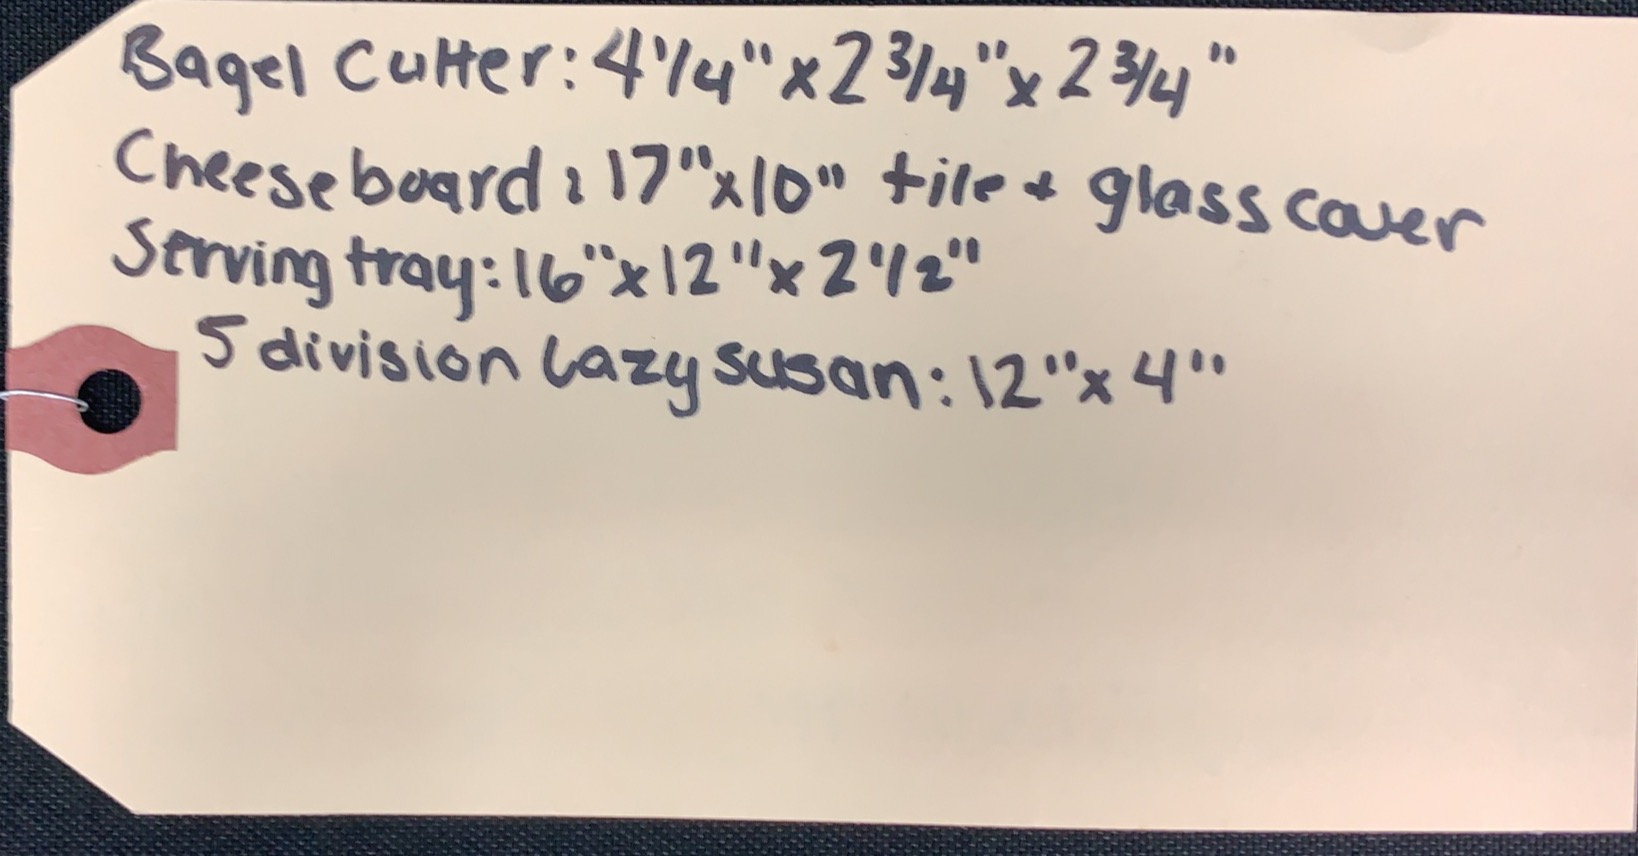 Bagel Cutter: 4 1/4" x 2 3/4" x 2 3/4"
Cheeseboard: 17" x 10" tile + glass cover
Serving tray: 16" x 12" x 2 1/2"
5 division Lazy Susan: 12" x 4"